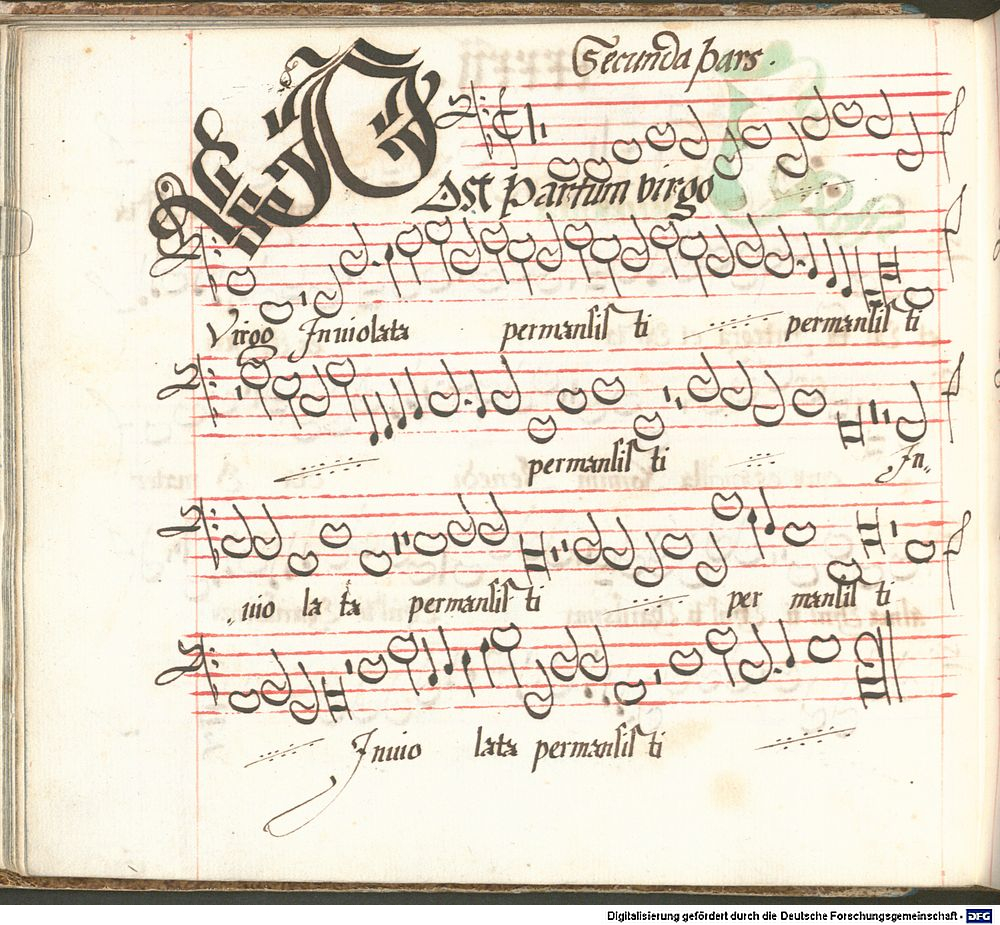 Secunda pars.
Post partum virgo
Virgo Inuiolata permansisti permansisti
permansisti In„
„uio la ta permansisti per mansisti
Inuio lata permansisti
Digitalisierung gefördert durch die Deutsche Forschungsgemeinschaft - DFG